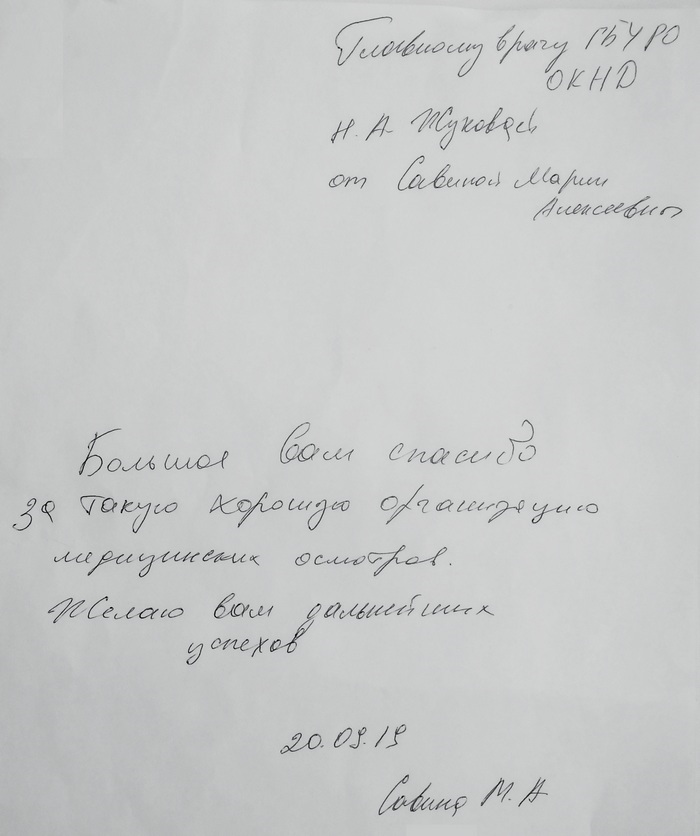 Главному врачу ГБУ РО
ОКНД
Н. А Жуковой
от Савиной Марии
Алексеевны
Большое Вам спасибо
за такую хорошую организацию
медицинских осмотров.
Желаю вам дальнейших
успехов
20.09.19
Савина М. А